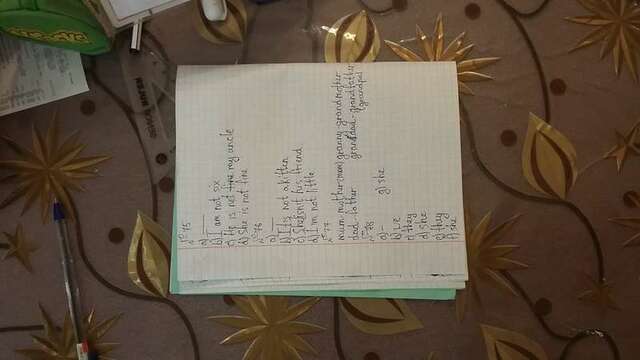 № 75
a) —
b) I am not six
c) He is not fine my uncle
d) She is not fine
№ 76
a) —
b) It is not a kitten
c) She isn't his friend
d) I'm not little
№ 77
mum - mother (mom) granny - grandmother
dad - father granddad - grandfather
(grandpa)
№ 78
a) - g) she
b) we
c) they
d) she
e) they
f) she